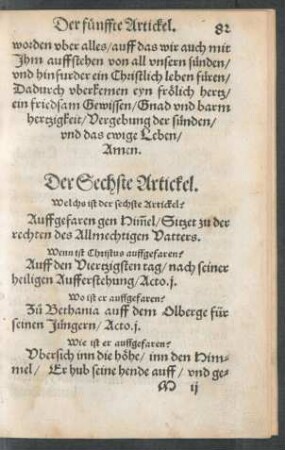 Der fünffte Artickel. 82
worden vber alles/auff das wir auch mit
Jhm aufferstehen von all vnsern sünden/
vnd hinfurder ein Christlich leben füren/
Dadurch vberkemen eyn frölich hertz/
ein friedsam Gewissen/Gnad vnd barm
hertzigkeit/Vergebung der sünden/
vnd das ewige Leben/
Amen.
Der Sechste Artickel.
Welchs ist der sechste Artickel?
Auffgefaren gen Him̃el/Sitzet zu der
rechten des Allmechtigen Vatters.
Wenn ist Christus auffgefaren?
Auff den Viertzigsten tag/nach seiner
heiligen Aufferstehung/Acto.j.
Wo ist er auffgefaren?
Zů Bethania auff dem Olberge für
seinen Jüngern/Acto.j.
Wie ist er auffgefaren?
Vbersich inn die höhe/inn den Him-
mel/ Er hub seine hende auff/ vnd ge-
M ij